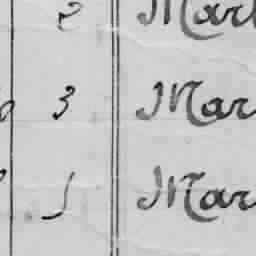 2 Mar
3 Mar
1 Mar